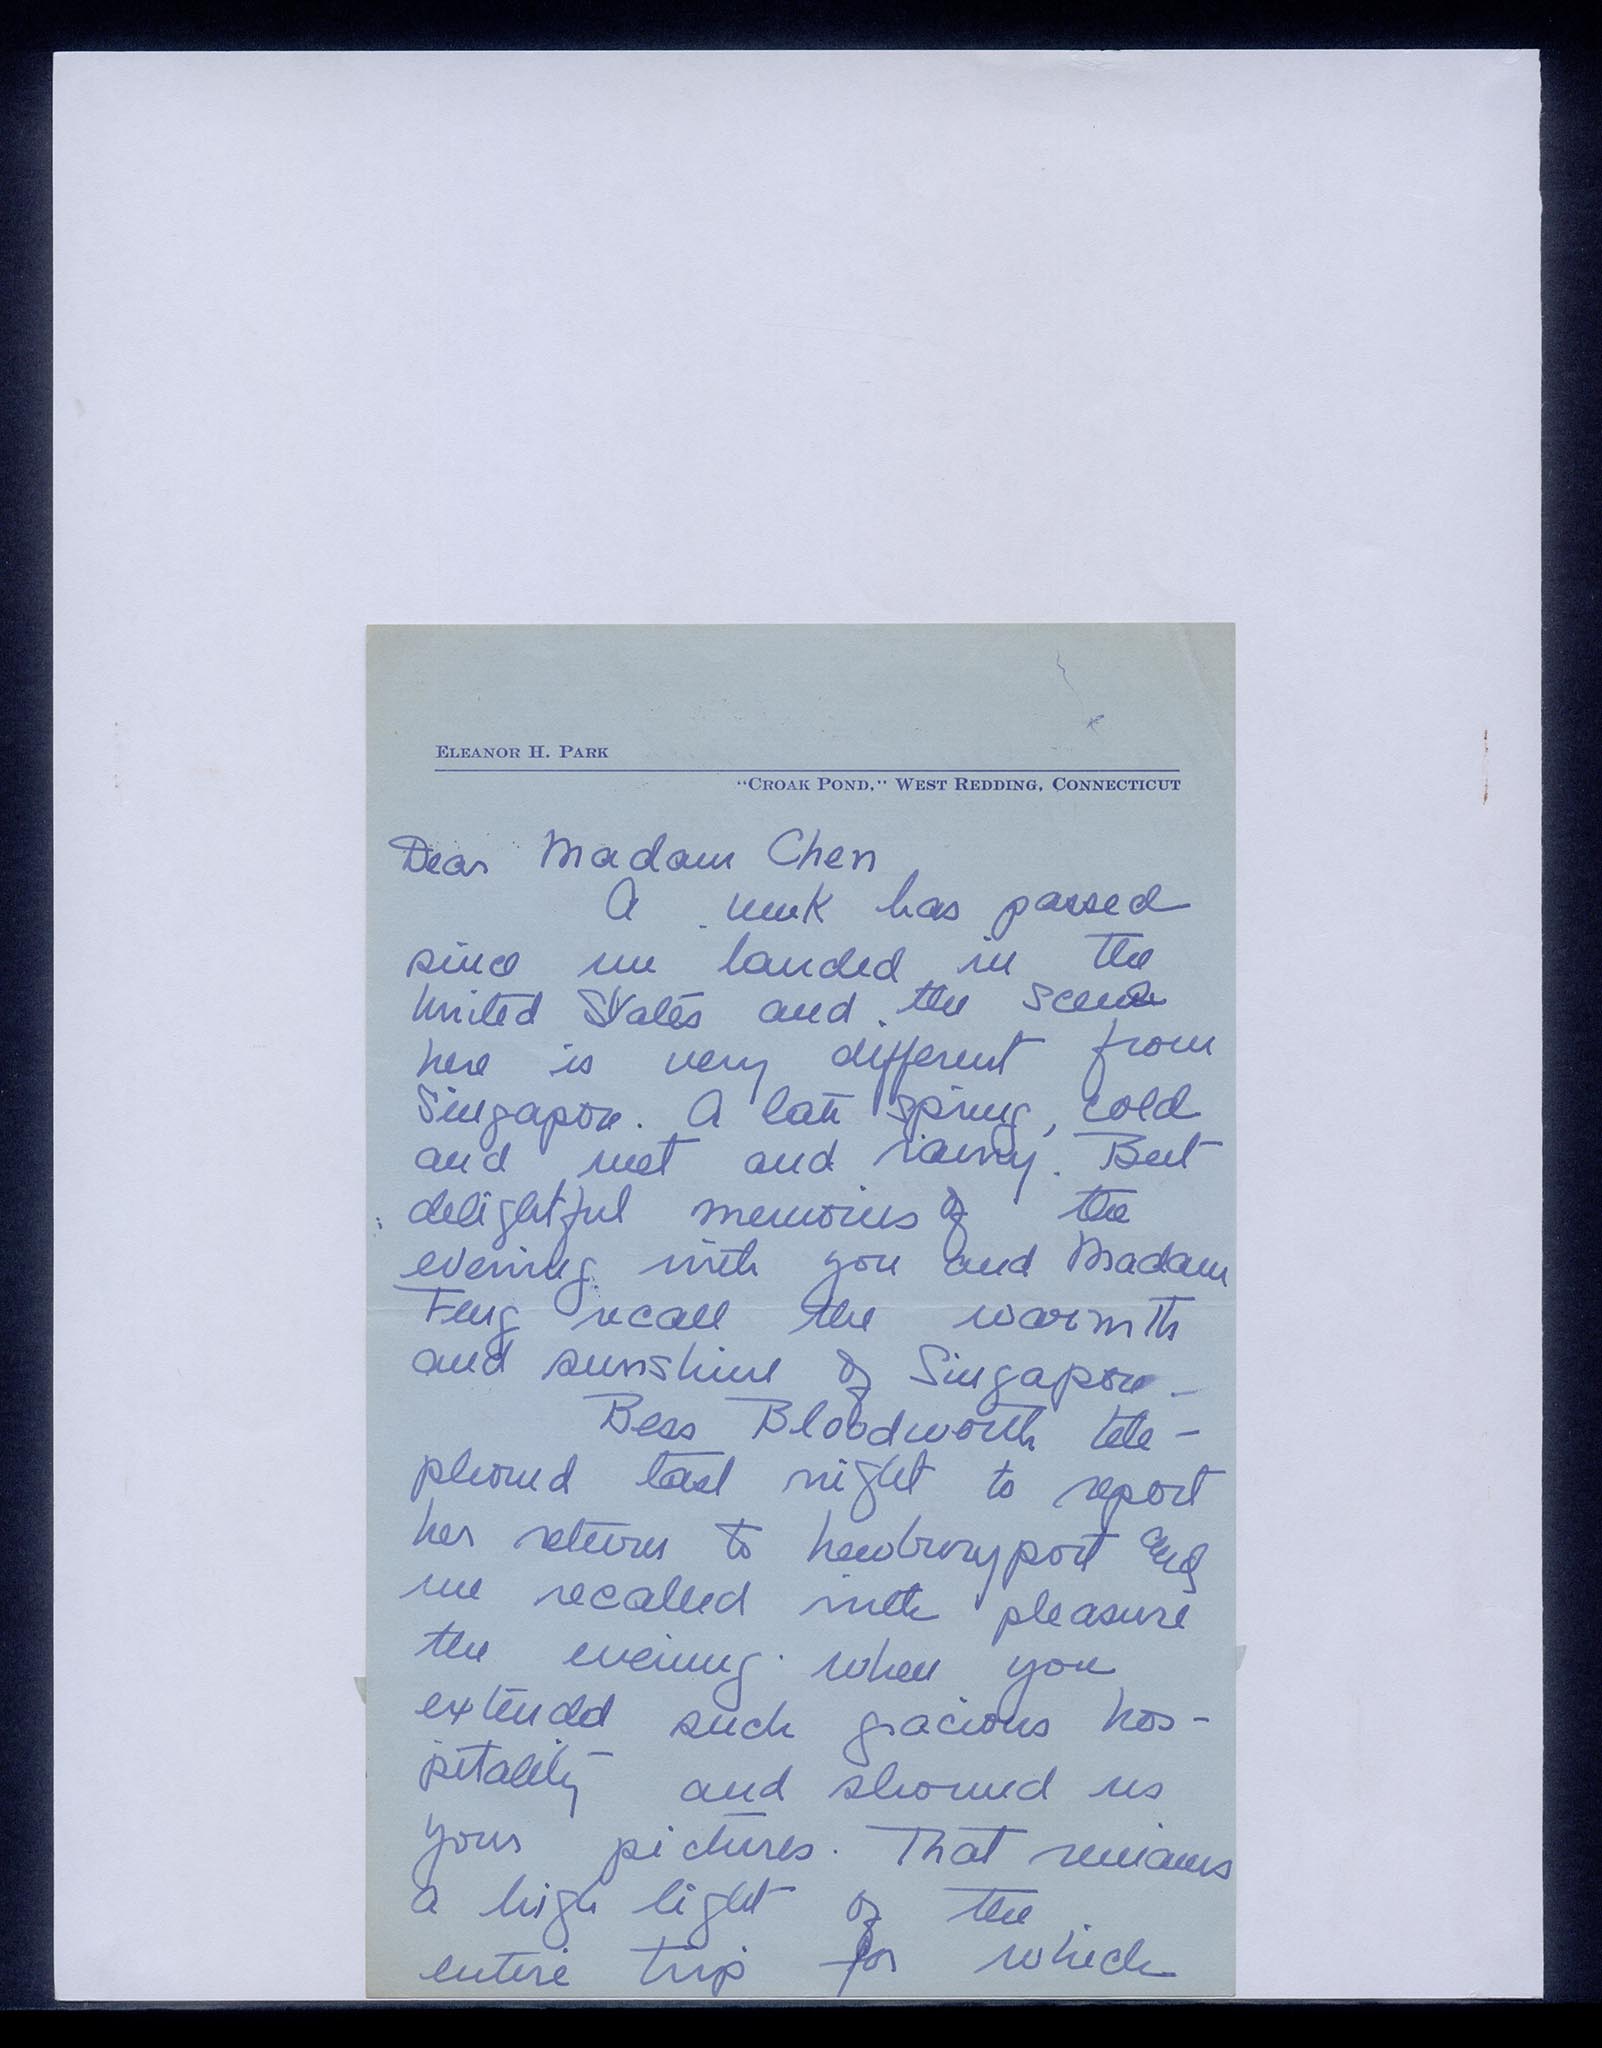 ELEANOR H. PARK
"CROAK POND," WEST REDDING, CONNECTICUT
Dear Madam Chen
A week has passed
since we landed in the
United States and the scene
here is very different from
Singapore. A late spring, cold
and wet and rainy. But
delightful memories of the
evening with you and Madam
Feng recall the warmth
and sunshine of Singapore -
Bess Bloodworth tele -
phoned last night to report
her return to Newburyport and
we recalled with pleasure
the evening when you
extended such gracious hos -
pitality and showed us
your pictures. That remains
a high light of the
entire trip for which